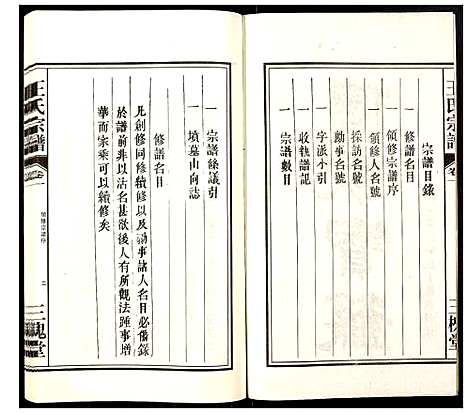 王氏宗譜
卷一
三槐堂
宗譜目錄
一 修譜名目
一 領修宗譜序
一 領修人名號
一 採訪名號
一 勷事名號
一 字派小引
一 收執譜記
一 宗譜數目
一 宗譜條議引
一 墳墓山向誌
修譜名目
凡創修同修續修以及勷事諸人名目必備錄
於譜前非以沽名甚欲後人有所觀法踵事增
華而宗乘可以續修矣
王氏宗譜
卷一
領修宗譜序
二
三槐堂